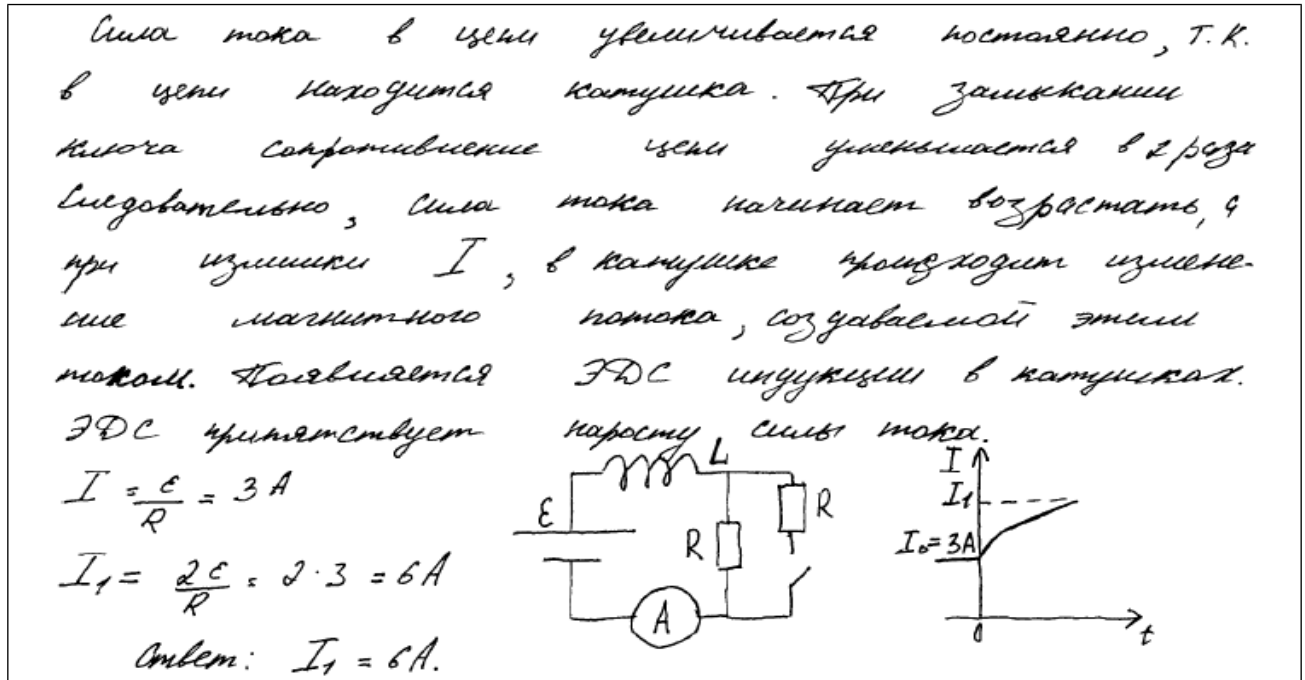 Сила тока в цепи увеличивается постоянно, т.к.
в цепи находится катушка. При замыкании
ключа сопротивление цепи уменьшается в 2 раза
Следовательно, сила тока начинает возрастать, а
при изминки I, в катушке происходит измене-
ние магнитного потока, создаваемой этим
током. Появляется ЭДС индукции в катушках.
ЭДС припятствует наросту силы тока.
I = ε/R = 3 А
I₁ = 2ε/R = 2·3 = 6А
Ответ: I₁ = 6А.
L
ε
R
R
A
I
I₁
I₀=3А
0
t